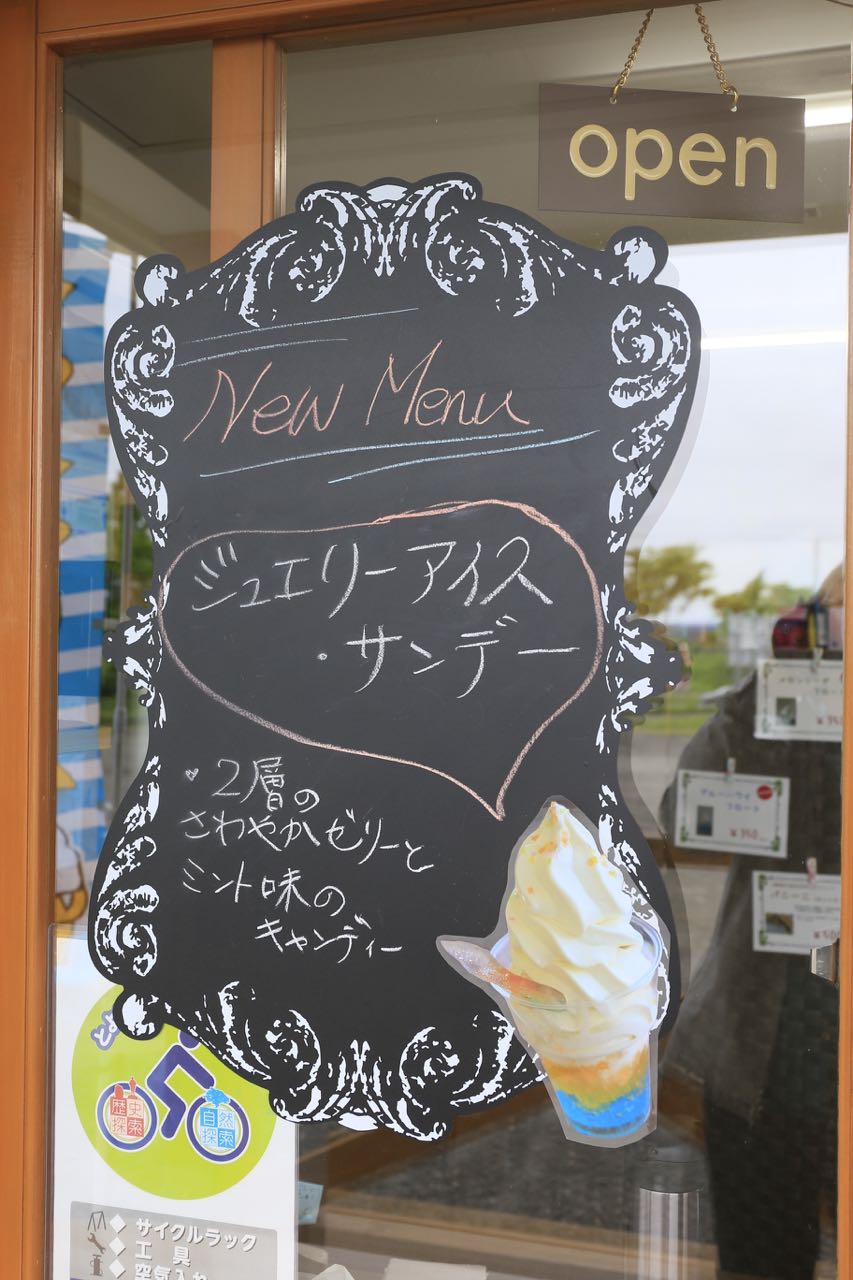 open
New Menu
ジュエリーアイス
・サンデー
2層の
さわやかゼリーと
ミント味の
キャンディー
歴史
探索
自然
探索
◆サイクルラック
◆工具
◆空気入れ
¥350